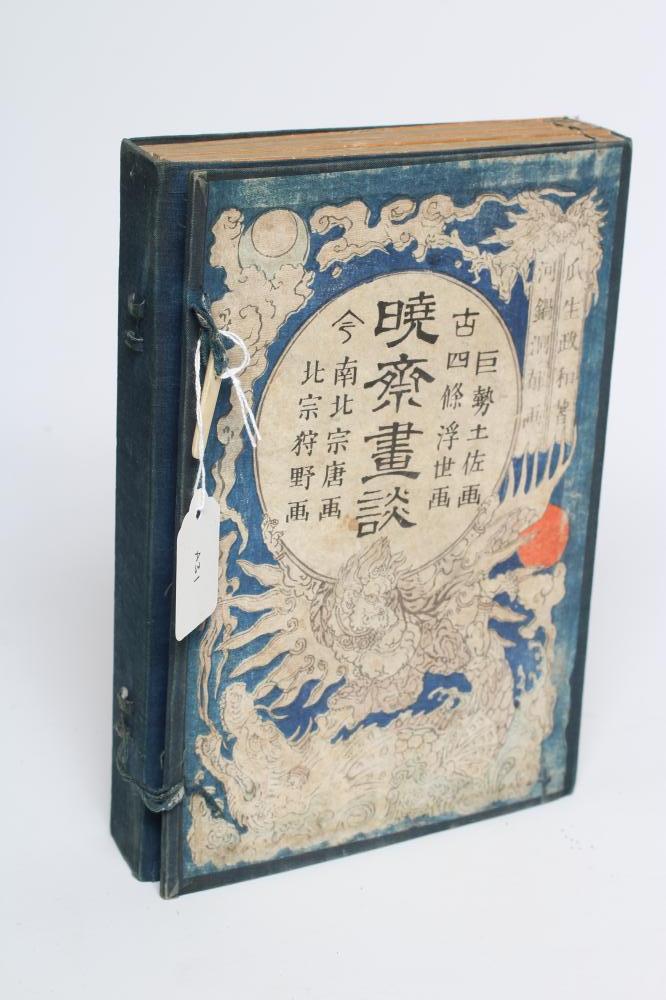 瓜生政和著
河鍋洞郁画
古
巨勢土佐画
四條浮世画
暁齋畫談
今
南北宗唐画
北宗狩野画
431